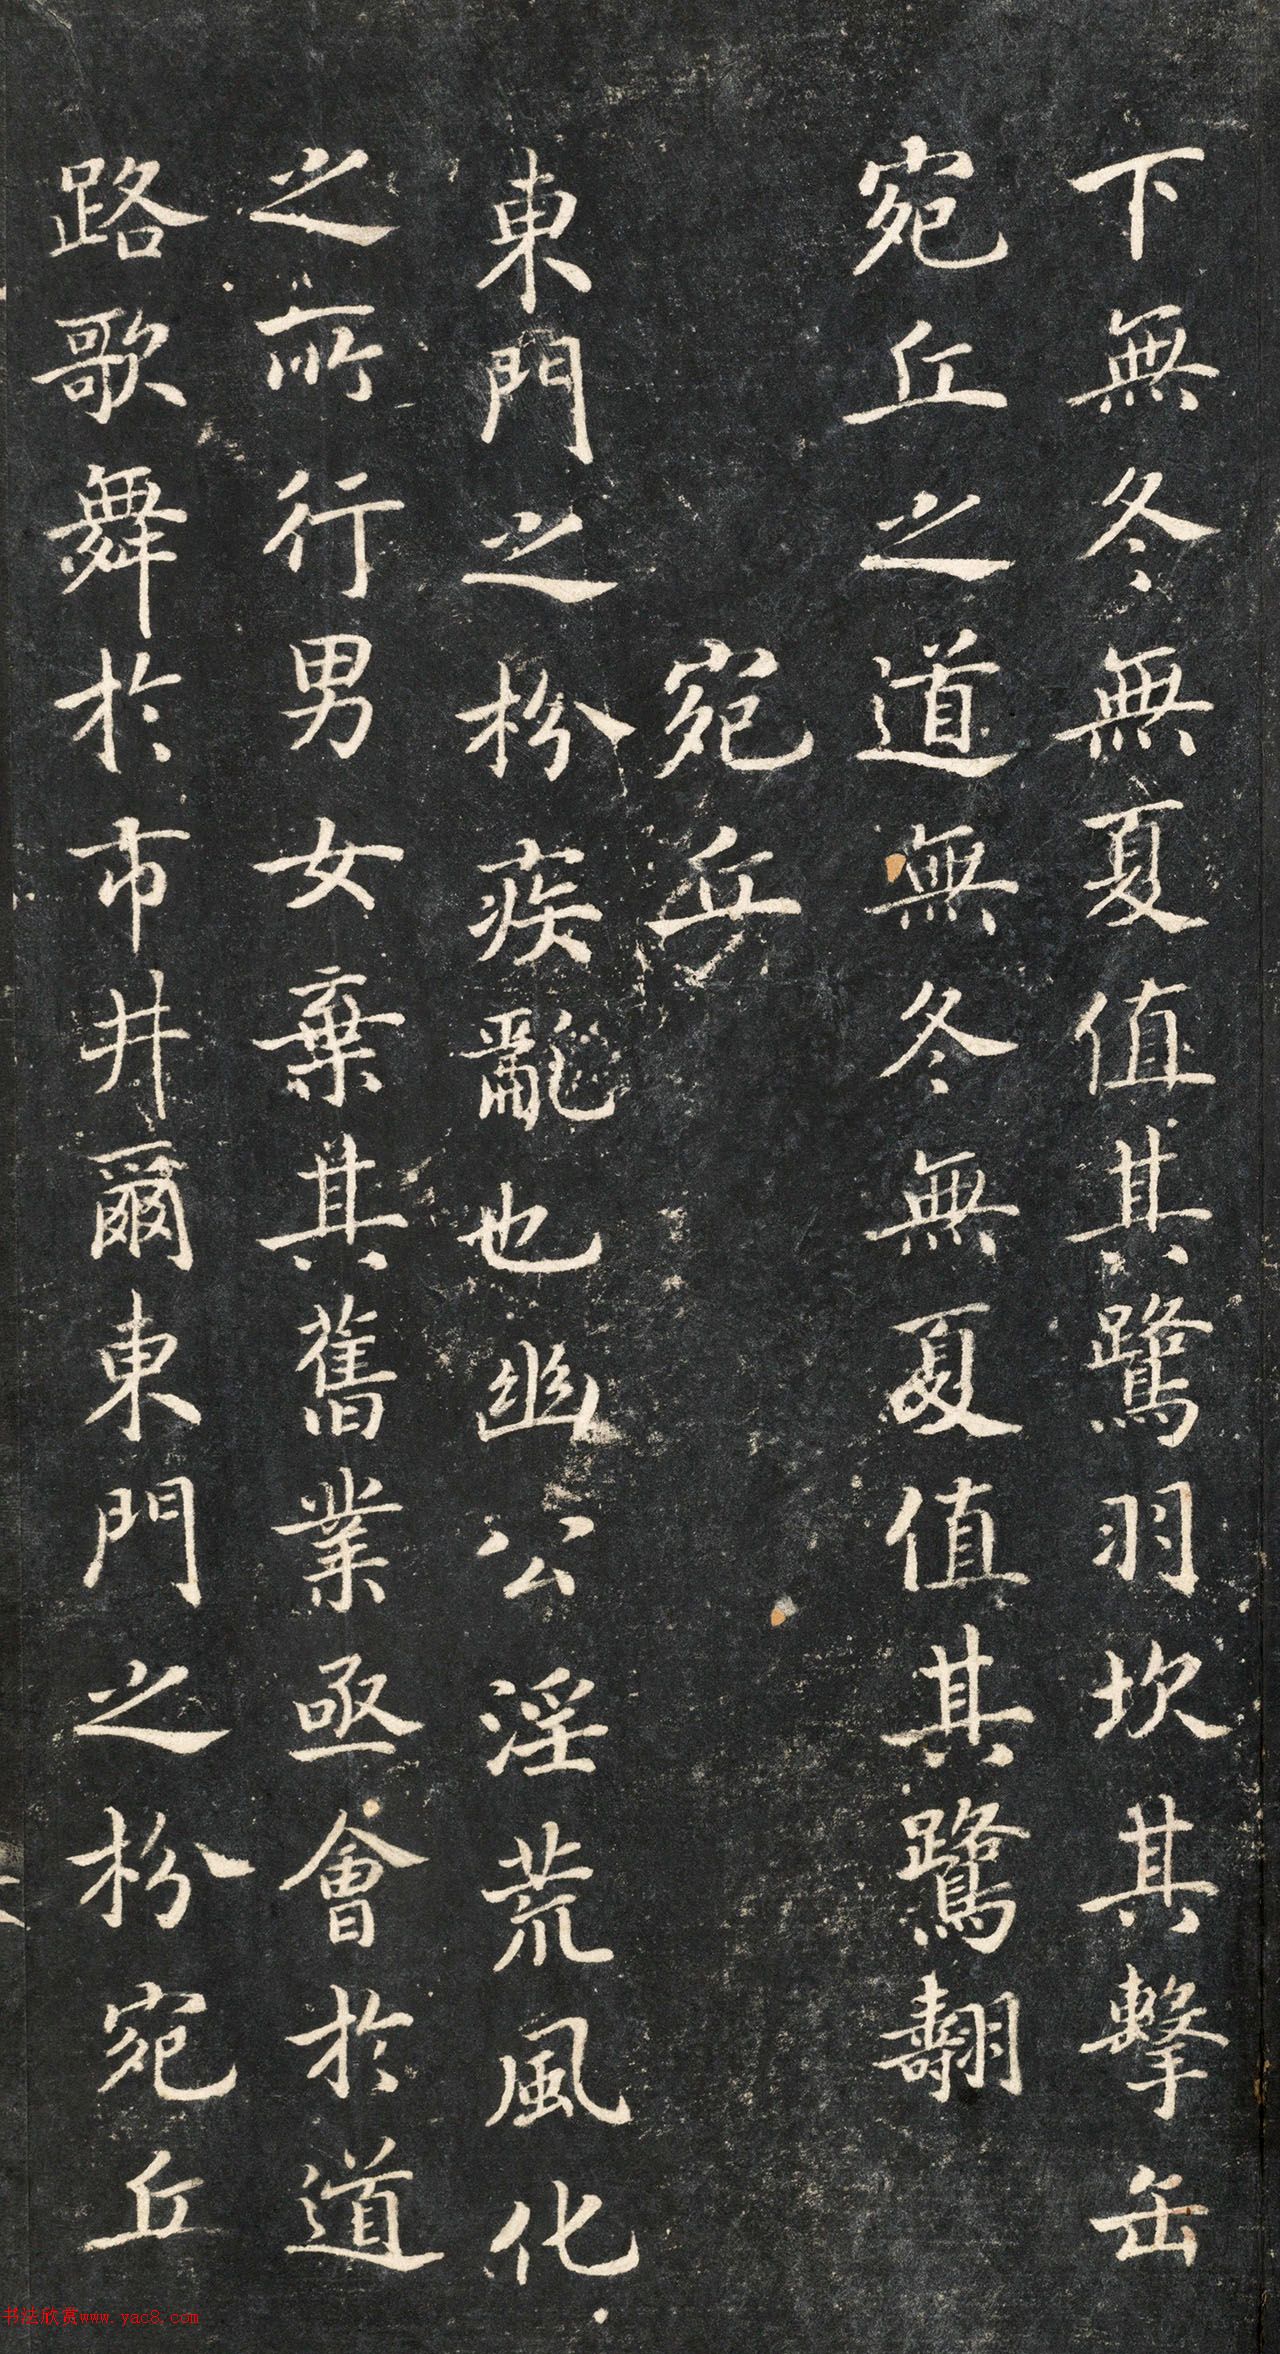 下無冬無夏值其鷺羽坎其擊缶
宛丘之道無冬無夏值其鷺翿
宛丘
東門之枌疾亂也幽公淫荒風化
之所行男女棄其舊業亟會於道
路歌舞於市井爾東門之枌宛丘
书法欣赏www.yac8.com